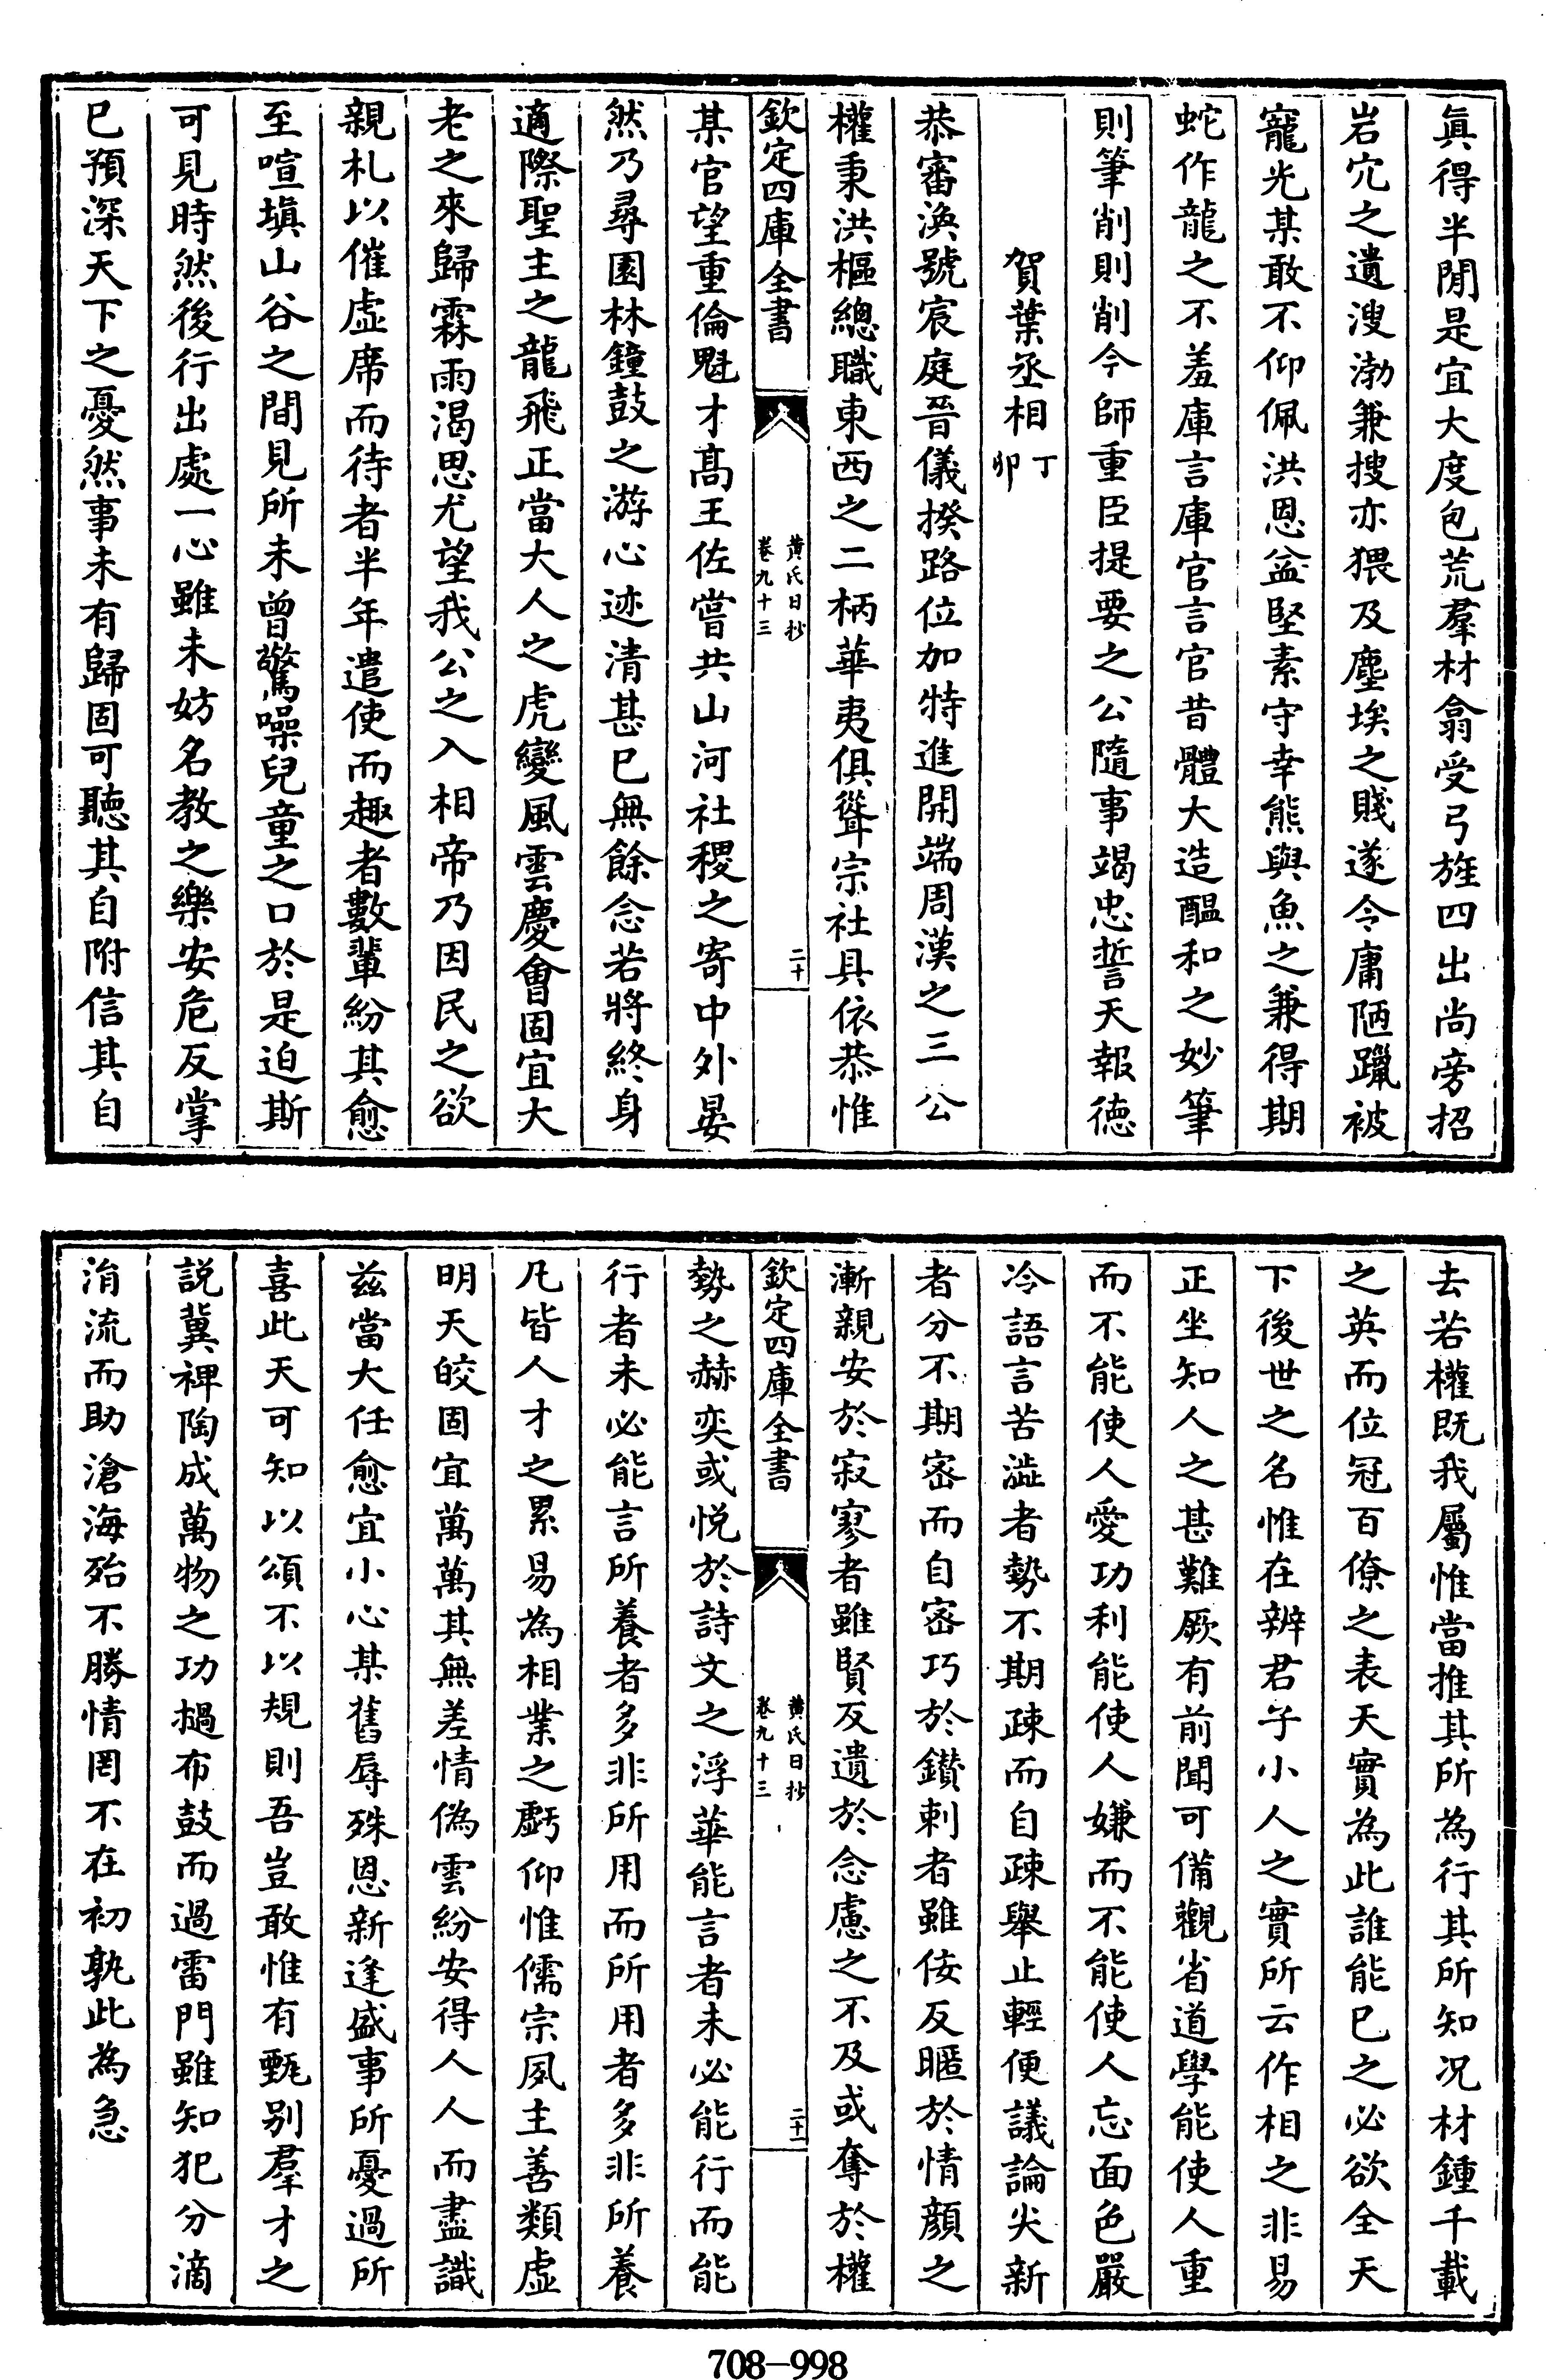 眞得半閒是宜大度包荒羣材翕受弓旌四出尚旁招
岩穴之遺溲渤兼搜亦猥及塵埃之賤遂令庸陋躐被
寵光某敢不仰佩洪恩益堅素守幸熊與魚之兼得期
蛇作龍之不羞庫言庫官言官昔體大造醖和之妙筆
則筆削則削今師重臣提要之公隨事竭忠誓天報德
賀葉丞相丁卯
恭審渙號宸庭晉儀揆路位加特進開端周漢之三公
權秉洪樞總職東西之二柄華夷俱聳宗社具依恭惟
欽定四庫全書
黄氏日抄
卷九十三
二十
某官望重倫魁才髙王佐嘗共山河社稷之寄中外晏
然乃尋園林鐘鼓之游心迹清甚已無餘念若將終身
適際聖主之龍飛正當大人之虎變風雲慶會固宜大
老之來歸霖雨渴思尤望我公之入相帝乃因民之欲
親札以催虛席而待者半年遣使而趣者數輩紛其愈
至喧塡山谷之間見所未曾驚噪兒童之口於是迫斯
可見時然後行出處一心雖未妨名教之樂安危反掌
已預深天下之憂然事未有歸固可聽其自附信其自
去若權既我屬惟當推其所為行其所知况材鍾千載
之英而位冠百僚之表天實為此誰能已之必欲全天
下後世之名惟在辨君子小人之實所云作相之非易
正坐知人之甚難厥有前聞可備觀省道學能使人重
而不能使人愛功利能使人嫌而不能使人忘面色嚴
冷語言苦澁者勢不期疎而自疎舉止輕便議論尖新
者分不期宻而自宻巧於鑚刺者雖佞反暱於情顔之
漸親安於寂寥者雖賢反遺於念慮之不及或奪於權
欽定四庫全書
黄氏日抄
卷九十三
二十一
勢之赫奕或悅於詩文之浮華能言者未必能行而能
行者未必能言所養者多非所用而所用者多非所養
凡皆人才之累易為相業之虧仰惟儒宗夙主善類虛
明天皎固宜萬萬其無差情偽雲紛安得人人而盡識
兹當大任愈宜小心某舊辱殊恩新逢盛事所憂過所
喜此天可知以頌不以規則吾豈敢惟有甄别羣才之
說冀禆陶成萬物之功撾布鼓而過雷門雖知犯分滴
涓流而助滄海殆不勝情罔不在初孰此為急
708-998